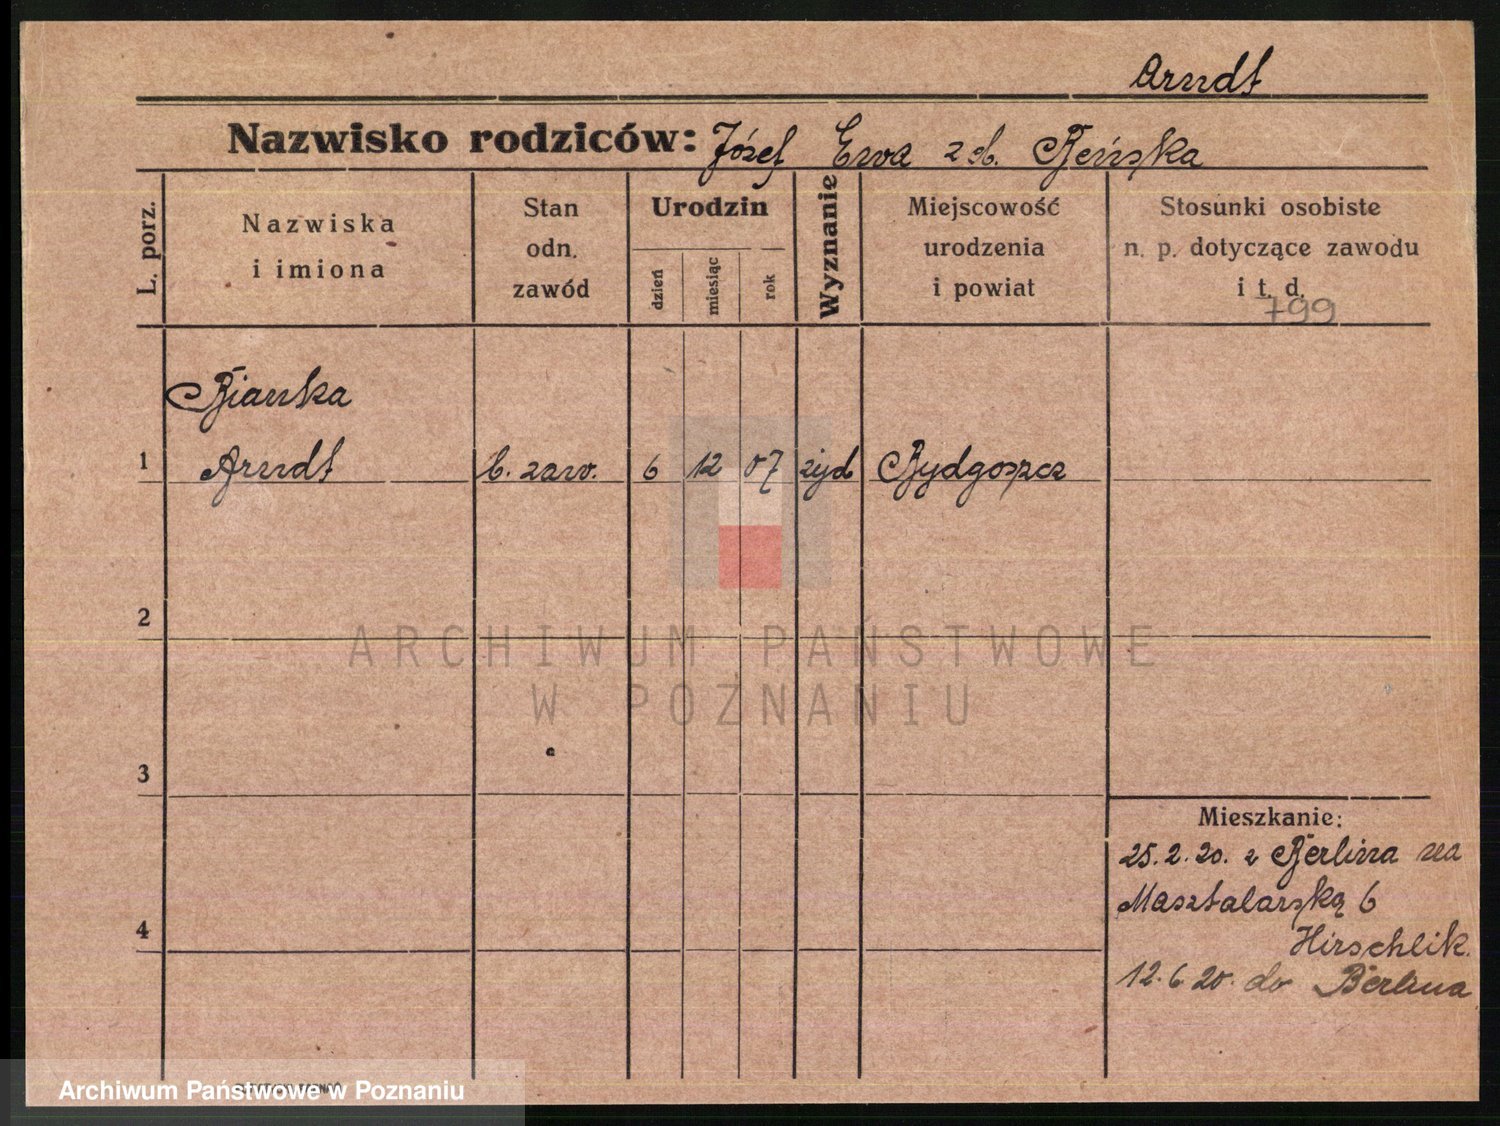 Arndt
Nazwisko rodziców: Józef Ewa z d. Beńska
L. porz.
Nazwiska i imiona
Stan odn. zawód
Urodzin
dzień
miesiąc
rok
Wyznanie
Miejscowość urodzenia i powiat
Stosunki osobiste n. p. dotyczące zawodu i t. d.
799
Bianka
1 Arndt b. zaw. 6 12 07 żyd Bydgoszcz
2
ARCHIWUM PAŃSTWOWE
W POZNANIU
3
Mieszkanie:
25.2.20. z Berlina na
Masztalarską 6
4
Hirschlik.
12.6.20. do Berlina
Archiwum Państwowe w Poznaniu